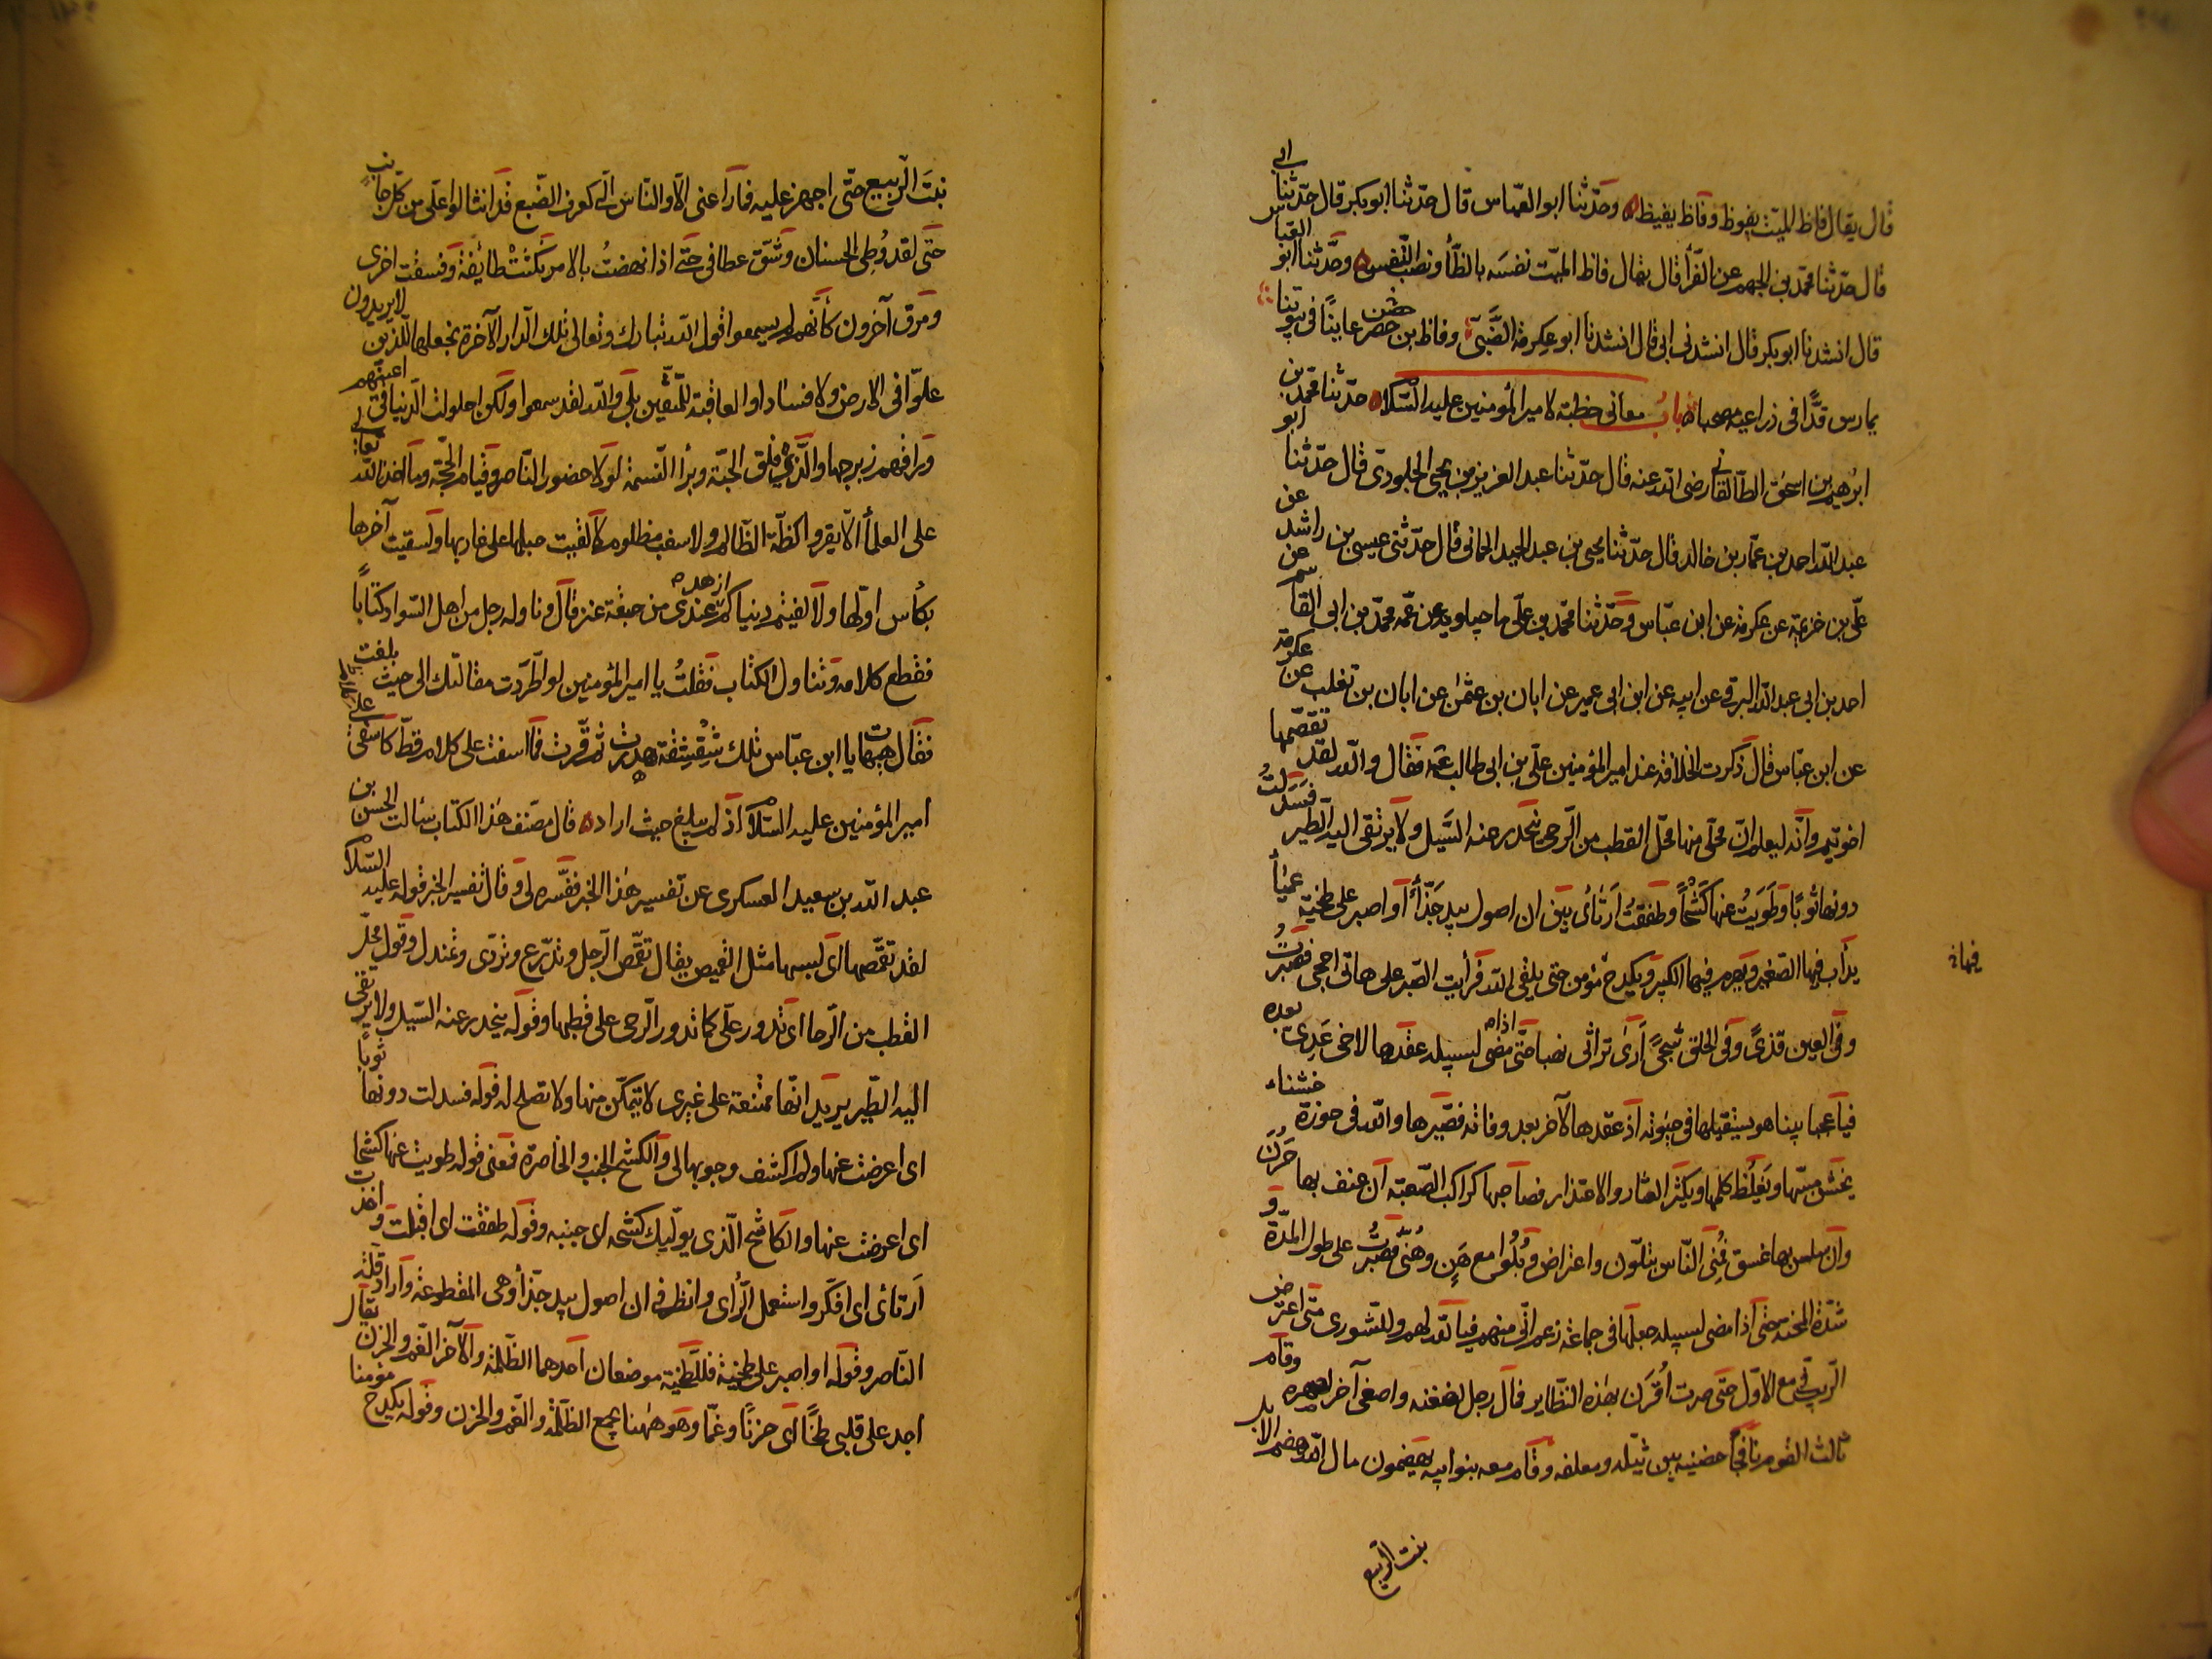 قال يقال فاظ الميّت يفوظ وفاظ يفيظ ه وحدّثنا ابو العبّاس قال حدّثنا ابو بكر قال حدّثنا ابى
قال حدّثنا محمّد بن الجهم عن الفرّاء قال يقال فاظ الميّت نفسَه بالظّاء ونصب النّفس ه وحدّثنا ابو العبّاس
قال انشدنا ابو بكر قال انشدنى ابى قال انشدنا ابو عِكرمة الضَّبّىّ وفاظ بن حصن عاينًا فى بيوتنا
يمارس قدًّا فى ذراعيه مصحبا ه بابُ معانى خطبة لامير المؤمنين عليه السّلام ه حدّثنا محمّد بن
ابرٰهيم بن اسحٰق الطّالقانى رضى اللّه عنه قال حدّثنا عبد العزيز بن يحيى الجلودىّ قال حدّثنا ابو
عبد اللّه احمد بن عمّار بن خالد قال حدّثنا يحيى بن عبد الحميد الحمانى قال حدّثنى عيسى بن راشد عن
علىّ بن خزيمة عن عكرمة عن ابن عبّاس وحدّثنا محمّد بن علىّ ماجيلويه عن عمّه محمّد بن ابى القاسم عن
احمد بن ابى عبد اللّه البرقى عن ابيه عن ابن ابى عمير عن ابان بن عثمٰن عن ابان بن تغلب عن عكرمة
عن ابن عبّاس قال ذكرت الخلافة عند امير المؤمنين علىّ بن ابى طالب عه فقال واللّه لقد تقمّصها
اخو تيم وانّه ليعلم انّ محلّى منها محلّ القطب من الرّحى ينحدر عنه السَّيل ولا يرتقى اليه الطّير فسَدَلتُ
دونها ثوبًا وطَوَيتُ عنها كَشْحًا وطفقتُ اَرتأى بين ان اصول بيد جَذّاء او اصبر على طخية عمياء
يدأب فيها الصّغير ويهرم فيها الكبير ويكدح مؤمن حتى يلقى اللّه فرأيت الصّبر على هاتى احجى فصبرتُ
فيها خ
وفى العين قذىً وفى الحلق شجىً اَرىٰ تراثى نهبا حتّى اذا مضى لسبيله عقدها لاخى عَدِى بعده
فيا عجبا بينا هو يستقيلها فى حيٰوته اذ عقدها لآخر بعد وفاته فصيّرها واللّه فى حوزة خشناء
يخشن مسّها ويَغلُظ كلمها ويكثر العثار والاعتذار فصاحبها كراكب الصّعبة ان عنف بها حَرَنَ
وان سلس بها غسق فمُنِىَ النّاس بتلّون واعتراض وبُلُوا مع هَنٍ وهُنَىٍّ فصَبَرتُ على طول المدّة و
شدّة المحنة حتى اذا مضى لسبيله جعلها فى جماعة زعم انّى منهم فيا للّه لهم وللشّورى متى اعترض
الرّيب فىّ مع الاوّل حتى صرت اُقرَن بهٰذه النّظاير فمال رجل لضغنه واصغى آخر لصهره وقام
ثالث القوم نافجًا حضنيه بين نثيله ومعلفه وقام معه بنو ابيه يهضمون مال اللّه هضم الابل
بنت الرّبيع
نبتَ الرّبيع حتّى اجهز عليه فما راعنى الّا والنّاس الىّ كعرف الضّبع قد انثالوا علىّ من كلّ جانبٍ
حتى لقد وُطِى الحسنان وشقّ عطافى حتّى اذا نهضتُ بالامر نكثتْ طايفة وفسقت اخرى
ومرق آخرون كأنّهم لم يسمعوا قول اللّه تبارك وتعالى تلك الدّار الآخرة نجعلها للّذين لا يريدون
علوّا فى الارض ولا فسادا والعاقبة للمتّقين بلى واللّه لقد سمعوا ولكن احلولت الدّنيا فى اعينهم
وراقهم زبرجها والّذى فلق الحبّة وبرأ النّسمة لولا حضور النّاصر وقيام الحجّة وما اخذ اللّه تعالى
على العلماء الّا يقروا كظّة الظّالم ولا سغب مظلوم لالقيت حبلها على غاربها ولسقيت آخرها
بكأس اوّلها ولالفيتم دنياكم ازهد عندى من حبقة عنز قال وناوله رجل من اهل السّواد كتابًا
فقطع كلامه وتناول الكتاب فقلتُ يا امير المؤمنين لو اطّردت مقالتك الى حيث بلغت
فقال هيهات يا ابن عبّاس تلك شِقْشِقة هدرت ثمّ قرّت فما اسفت على كلام قطّ كاسفى على كلام
امير المؤمنين عليه السّلام اذ لم يبلغ حيث اراد ه قال مصنّف هٰذا الكتاب سألت الحسن بن
عبد اللّه بن سعيد العسكرى عن تفسير هٰذا الخبر ففسّره لى وقال تفسير الخبر قوله عليه السّلام
لقد تقمّصها اى لبسها مثل القميص يقال تقمّص الرّجل وتدرّع وتردّى وتمندل وقوله محلّ
القطب من الرّحا اى تدور علىّ كما تدور الرّحى على قطبها وقوله ينحدر عنه السّيل ولا يرتقى
اليه الطّير يريد انّها ممتنعة على غيرى لا يتمكّن منها ولا تصلح له قوله فسدلت دونها ثوبًا
اى اعرضت عنها ولم اكشف وجوبها لى والكشح الجنب والخاصرة فمعنى قوله طويت عنها كشحا
اى اعرضت عنها والكاشح الّذى يولّيك كشحه اى جنبه وقوله طفقت اى اقبلت واخذت
اَرتأى اى افكّر واستعمل الرّأى وانظر فى ان اصول بيد جذّاء وهى المقطوعة واراد قلّة
النّاصر وقوله او اصبر على طخية فللطّخية موضعان احدهما الظّلمة والآخر الغمّ والحزن يقال
اجد على قلبى طخًا اى حزنًا وغمّا وهو هٰهنا يجمع الظّلمة والغمّ والحزن وقوله يكدح مؤمنا